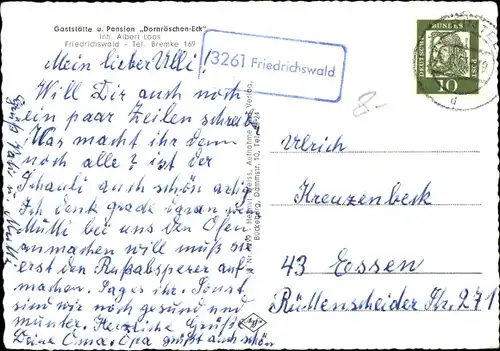 Gaststätte u. Pension „Dornröschen-Eck"
Inh. Albert Loos
Friedrichswald - Tel. Bremke 169
3261 Friedrichswald
DEUTSCHE
BUNDESPOST
10
Mein lieber Ulli!
Will Dir auch noch
ein paar Zeilen schreiben
Was macht ihr denn
noch alle? ist der
Schauli auch schön artig
Ich denk grade daran wenn
Mutti bei uns den Ofen
anmachen will muß sie
erst den Rußabsperer auf
machen. Sages ihr. Sonst
sind wir noch gesund und
munter. Herzliche Grüße
Deine Oma. Opa grüßt auch schön
Helmut Weiss, Aufnahme
Bückeburg, Dammstr. 10, Tel.
Ulrich
Kreuzenbeck
43 Essen
Rüttenscheider Str. 271